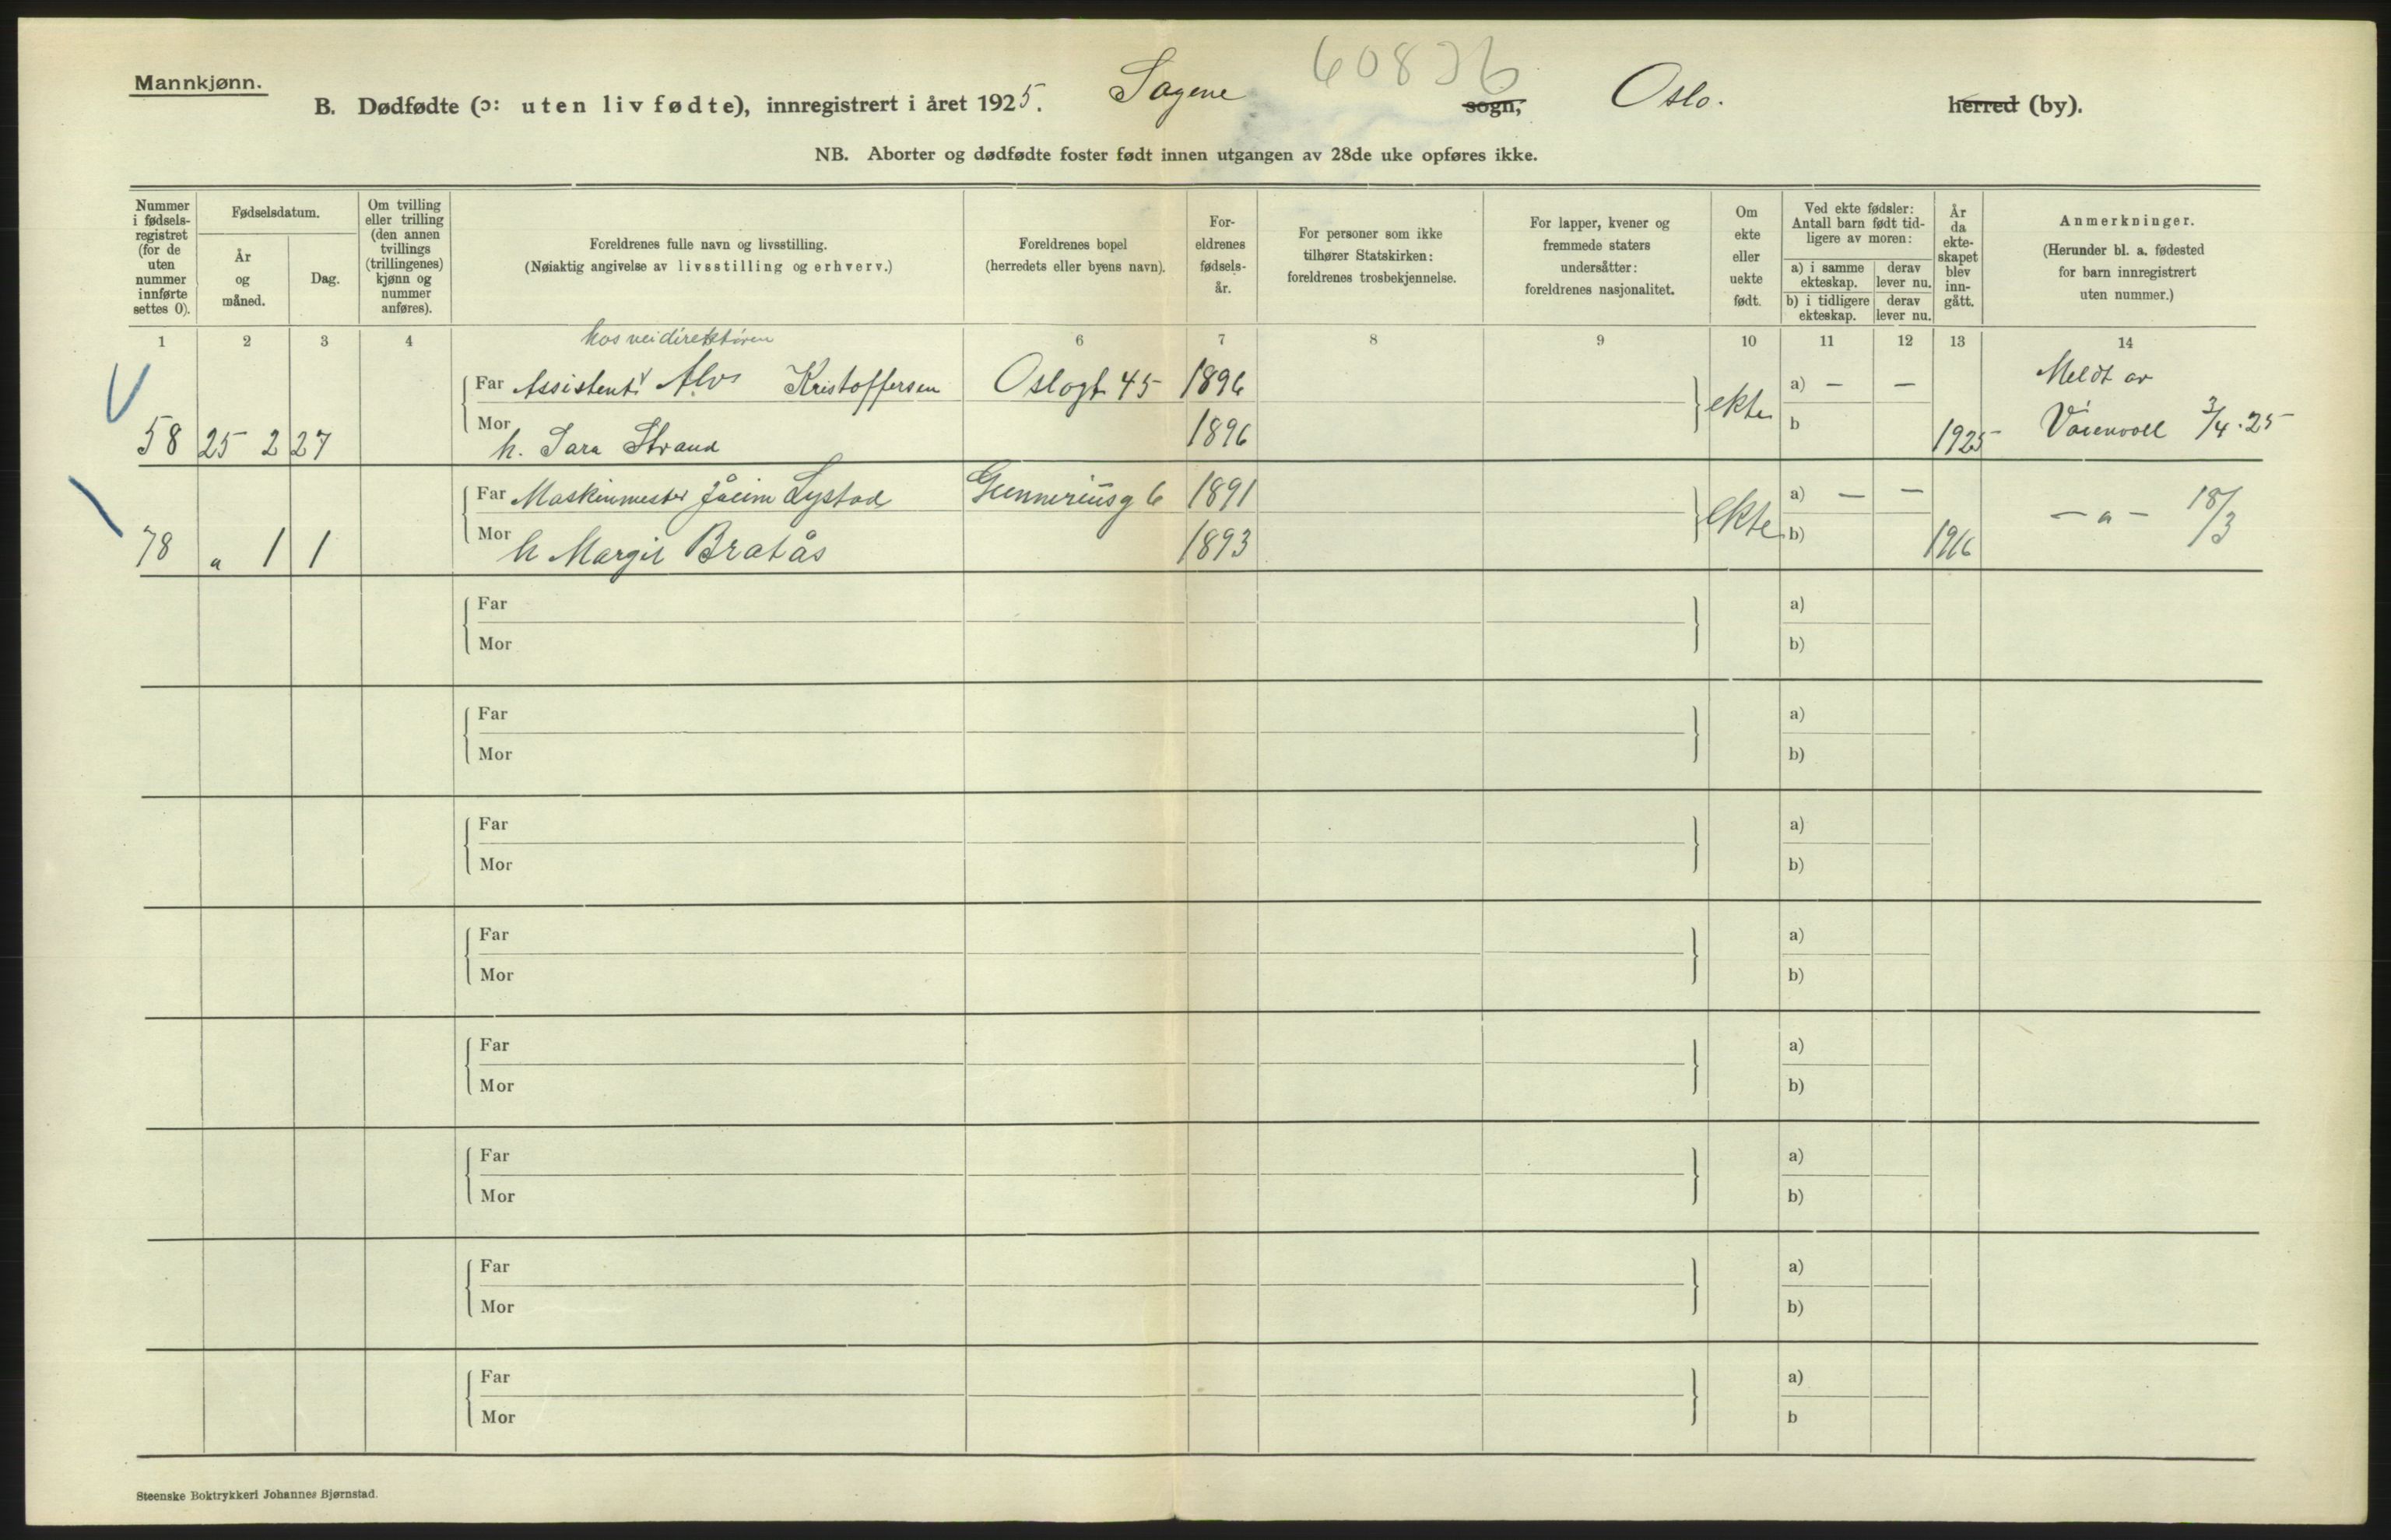 Mannkjønn.
60836
B. Dødfødte (ɔ: uten liv fødte), innregistrert i året 1925. Sagene sogn, Oslo. herred (by).
NB. Aborter og dødfødte foster født innen utgangen av 28de uke opføres ikke.
Nummer
i fødsels-
registret
(for de
uten
nummer
innførte
settes 0).
Fødselsdatum.
År
og
måned.
Dag.
Om tvilling
eller trilling
(den annen
tvillings
(trillingenes)
kjønn og
nummer
anføres).
Foreldrenes fulle navn og livsstilling.
(Nøiaktig angivelse av livsstilling og erhverv.)
Foreldrenes bopel
(herredets eller byens navn).
For-
eldrenes
fødsels-
år.
For personer som ikke
tilhører Statskirken:
foreldrenes trosbekjennelse.
For lapper, kvener og
fremmede staters
undersåtter:
foreldrenes nasjonalitet.
Om
ekte
eller
uekte
født.
Ved ekte fødsler:
Antall barn født tid-
ligere av moren:
a) i samme
ekteskap.
derav
lever nu.
b) i tidligere
ekteskap.
derav
lever nu.
År
da
ekte-
skapet
blev
inn-
gått.
Anmerkninger.
(Herunder bl. a. fødested
for barn innregistrert
uten nummer.)
1 2 3 4 6 7 8 9 10 11 12 13 14
hos veidirektøren
Far Assistent Alv Kristoffersen Oslogt 45 1896 ekte a) — — Meldt av
58 25 2 27 Mor h. Sara Strand 1896 b 1925 3/4.25
Far Maskinmester Lystad Gunneriusg 6 1891 ekte a) — — — " — 18/3
78 " 1 1 Mor h Margit Bratås 1893 b) 1916
Far a)
Mor b)
Far a)
Mor b)
Far a)
Mor b)
Far a)
Mor b)
Far a)
Mor b)
Far a)
Mor b)
Far a)
Mor b)
Far a)
Mor b
Steenske Boktrykkeri Johannes Bjørnstad.